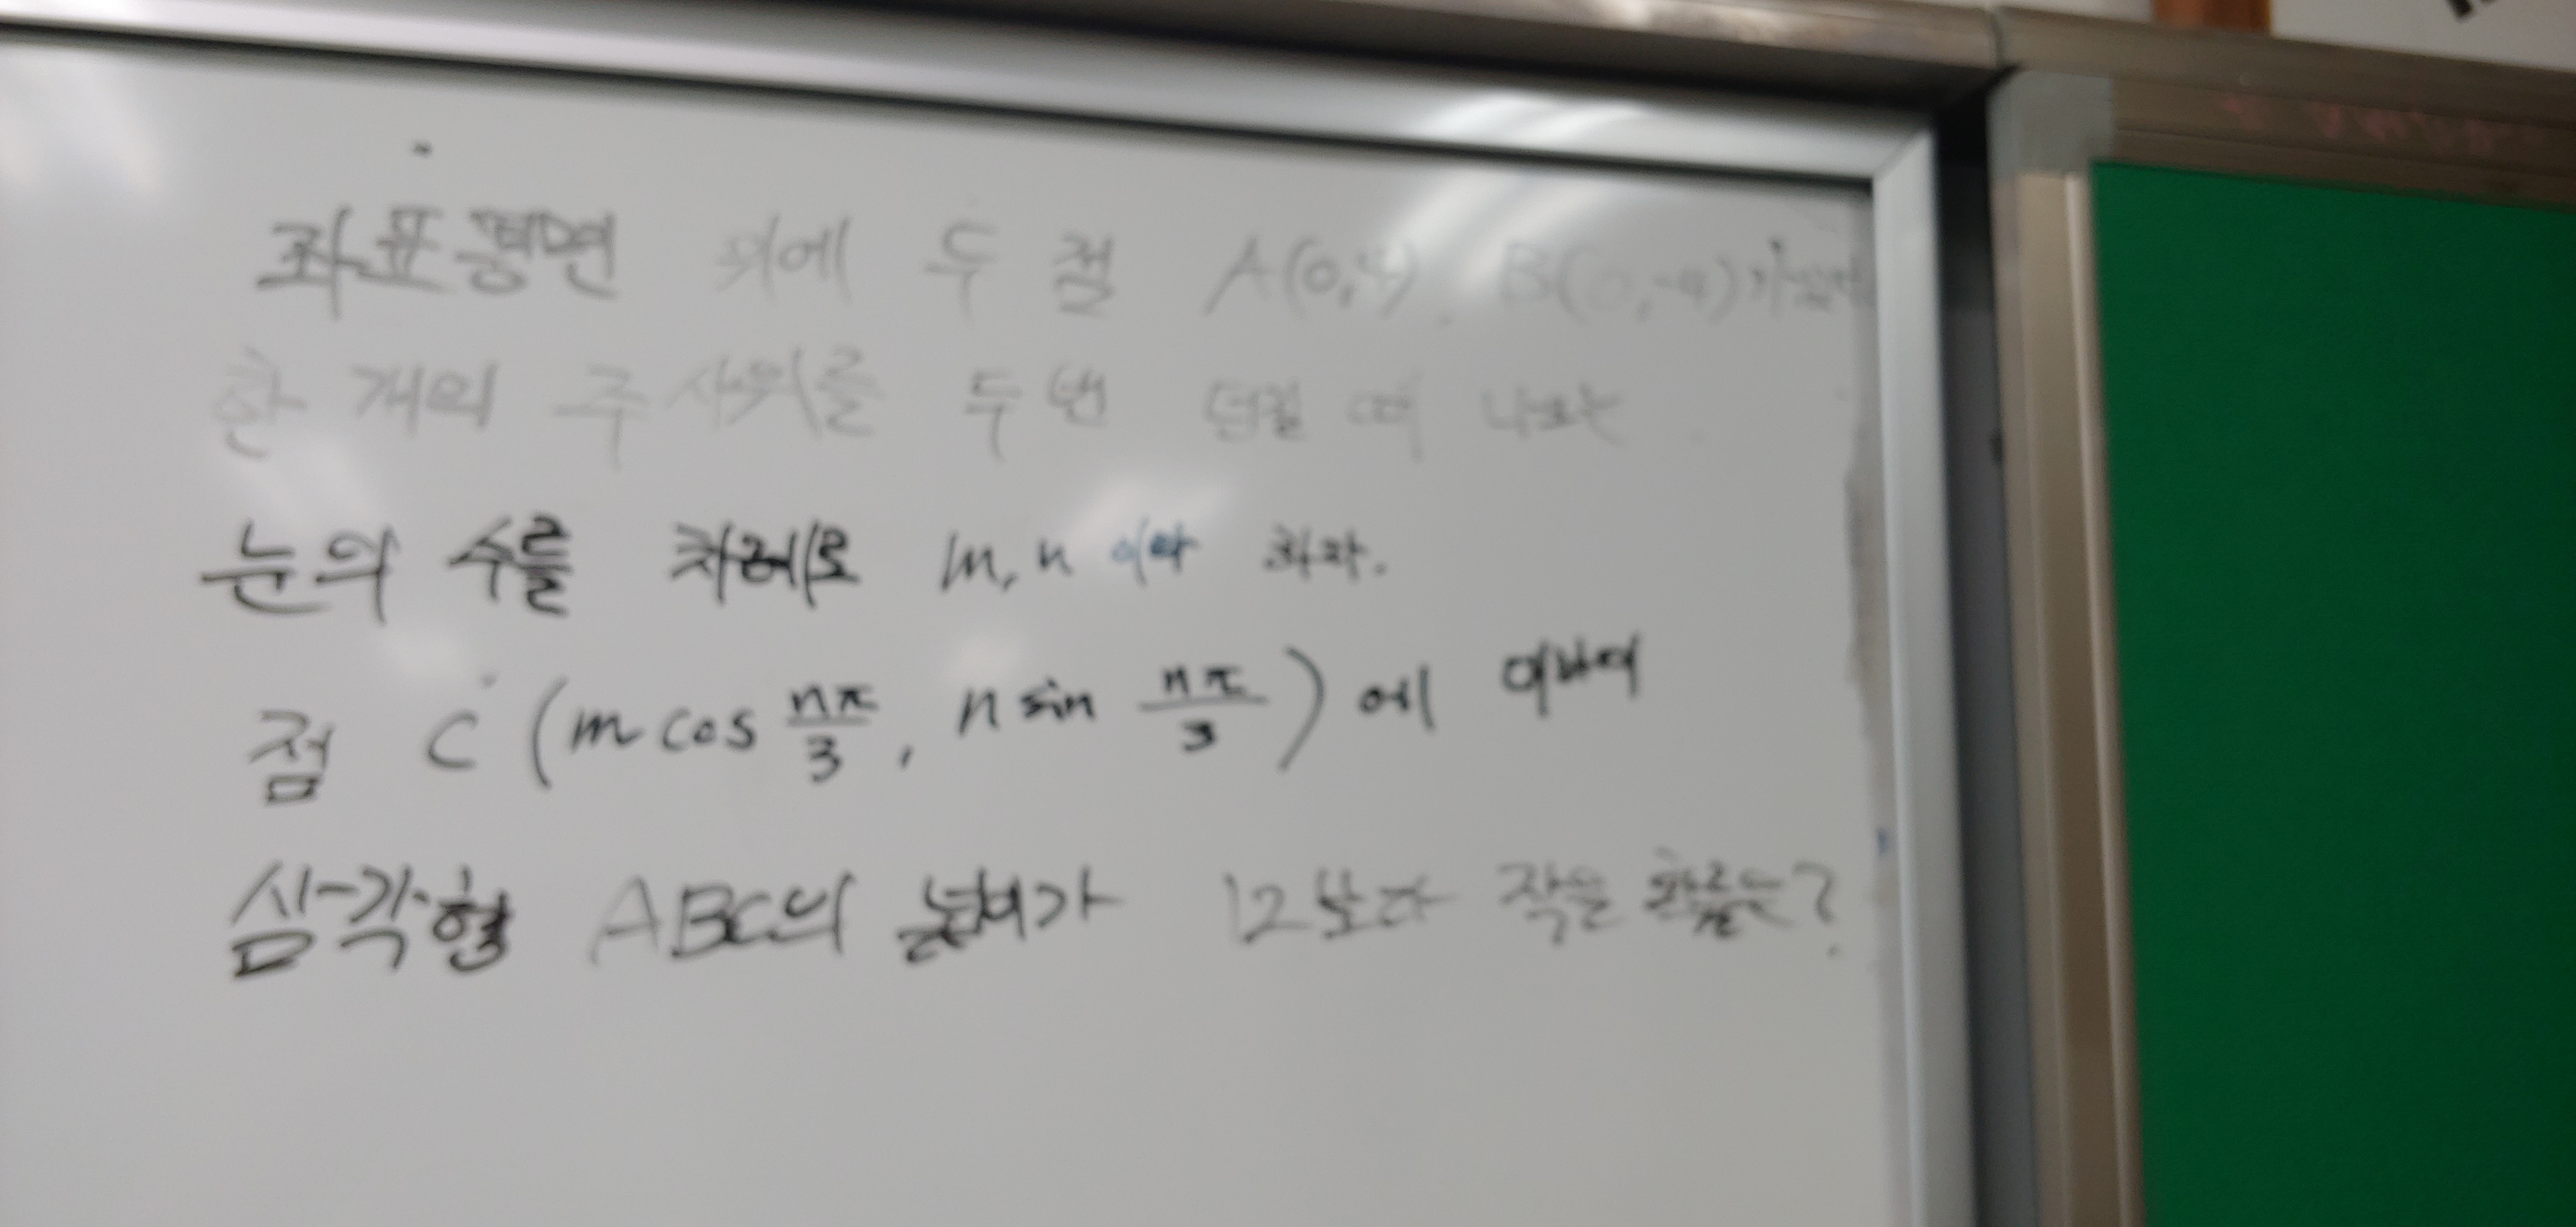 좌표평면 위에 두 점 A(0,4), B(0,-4)가 있다
한 개의 주사위를 두 번 던질 때 나오는
눈의 수를 차례로 m, n 이라 하자.
점 C (m cos nπ/3, n sin nπ/3) 에 대하여
삼각형 ABC의 넓이가 12보다 작을 확률은?